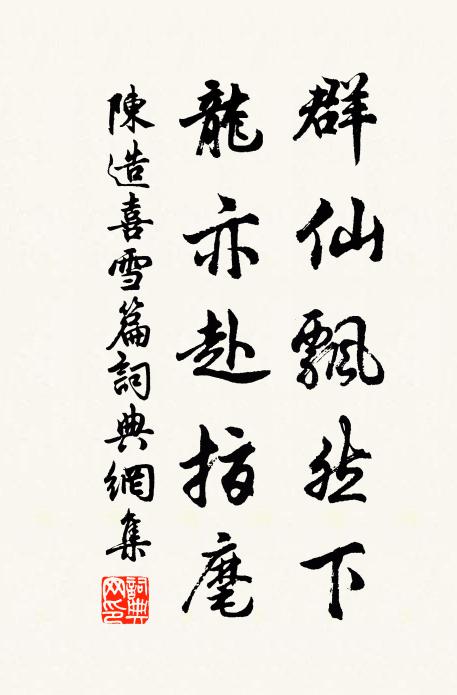 群仙飄然下
龍亦赴指麾
陳造喜雪篇詞典網集
詞典網印